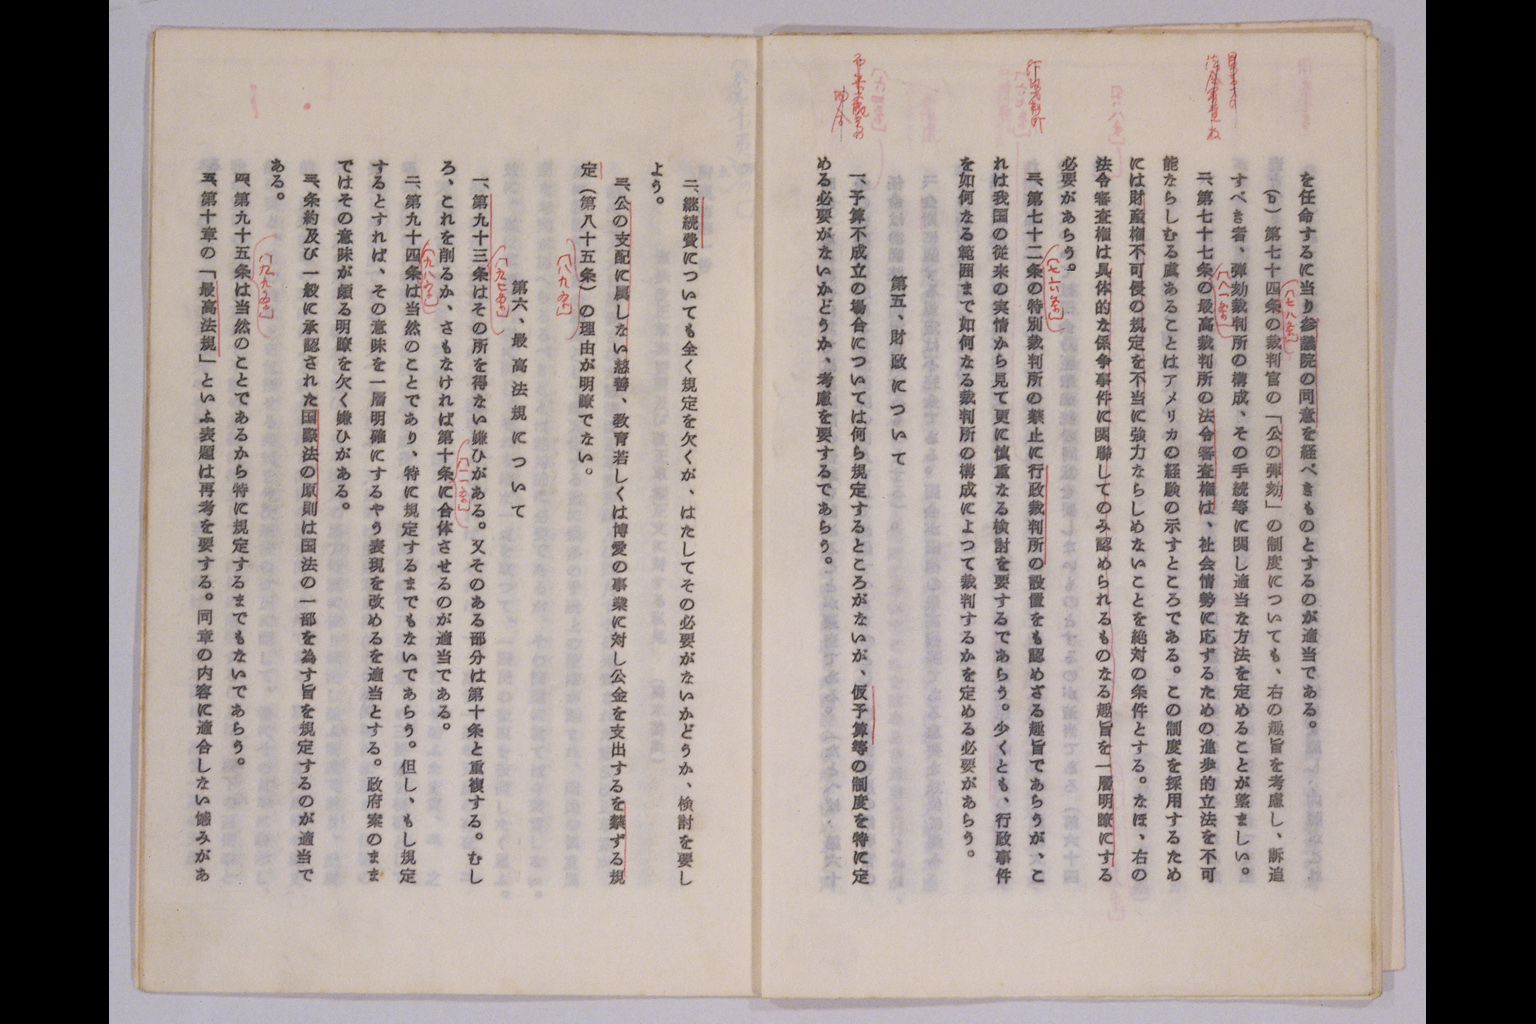 を任命するに当り参議院の同意を経べきものとするのが適当である。
(ロ)第七十四条の裁判官の「公の弾劾」の制度についても、右の趣旨を考慮し、訴追
〔七八条〕
すべき者、弾劾裁判所の構成、その手続等に関し適当な方法を定めることが望ましい。
二、第七十七条の最高裁判所の法令審査権は、社会情勢に応ずるための進歩的立法を不可
〔八一条〕
能ならしむる虞あることはアメリカの経験の示すところである。この制度を採用するため
には財産権不可侵の規定を不当に強力ならしめないことを絶対の条件とする。なほ、右の
法令審査権は具体的な係争事件に関聯してのみ認められるものなる趣旨を一層明瞭にする
必要があらう。
三、第七十二条の特別裁判所の禁止に行政裁判所の設置をも認めざる趣旨であらうが、こ
〔七六条〕
れは我国の従来の実情から見て更に慎重なる検討を要するであらう。少くとも、行政事件
を如何なる範囲まで如何なる裁判所の構成によつて裁判するかを定める必要があらう。
第五、財政について
一、予算不成立の場合については何ら規定するところがないが、仮予算等の制度を特に定
める必要がないかどうか、考慮を要するであらう。
二、継続費についても全く規定を欠くが、はたしてその必要がないかどうか、検討を要し
よう。
三、公の支配に属しない慈善、教育若しくは博愛の事業に対し公金を支出するを禁ずる規
定(第八十五条)の理由が明瞭でない。
〔八九条〕
第六、最高法規について
一、第九十三条はその所を得ない嫌ひがある。又そのある部分は第十条と重複する。むし
〔九七条〕
ろ、これを削るか、さもなければ第十条に合体させるのが適当である。
〔一一条〕
二、第九十四条は当然のことであり、特に規定するまでもないであらう。但し、もし規定
〔九八条〕
するとすれば、その意味を一層明確にするやう表現を改めるを適当とする。政府案のまま
ではその意味が頗る明瞭を欠く嫌ひがある。
三、条約及び一般に承認された国際法の原則は国法の一部を為す旨を規定するのが適当で
ある。
四、第九十五条は当然のことであるから特に規定するまでもないであらう。
〔九九条〕
五、第十章の「最高法規」といふ表題は再考を要する。同章の内容に適合しない憾みがあ